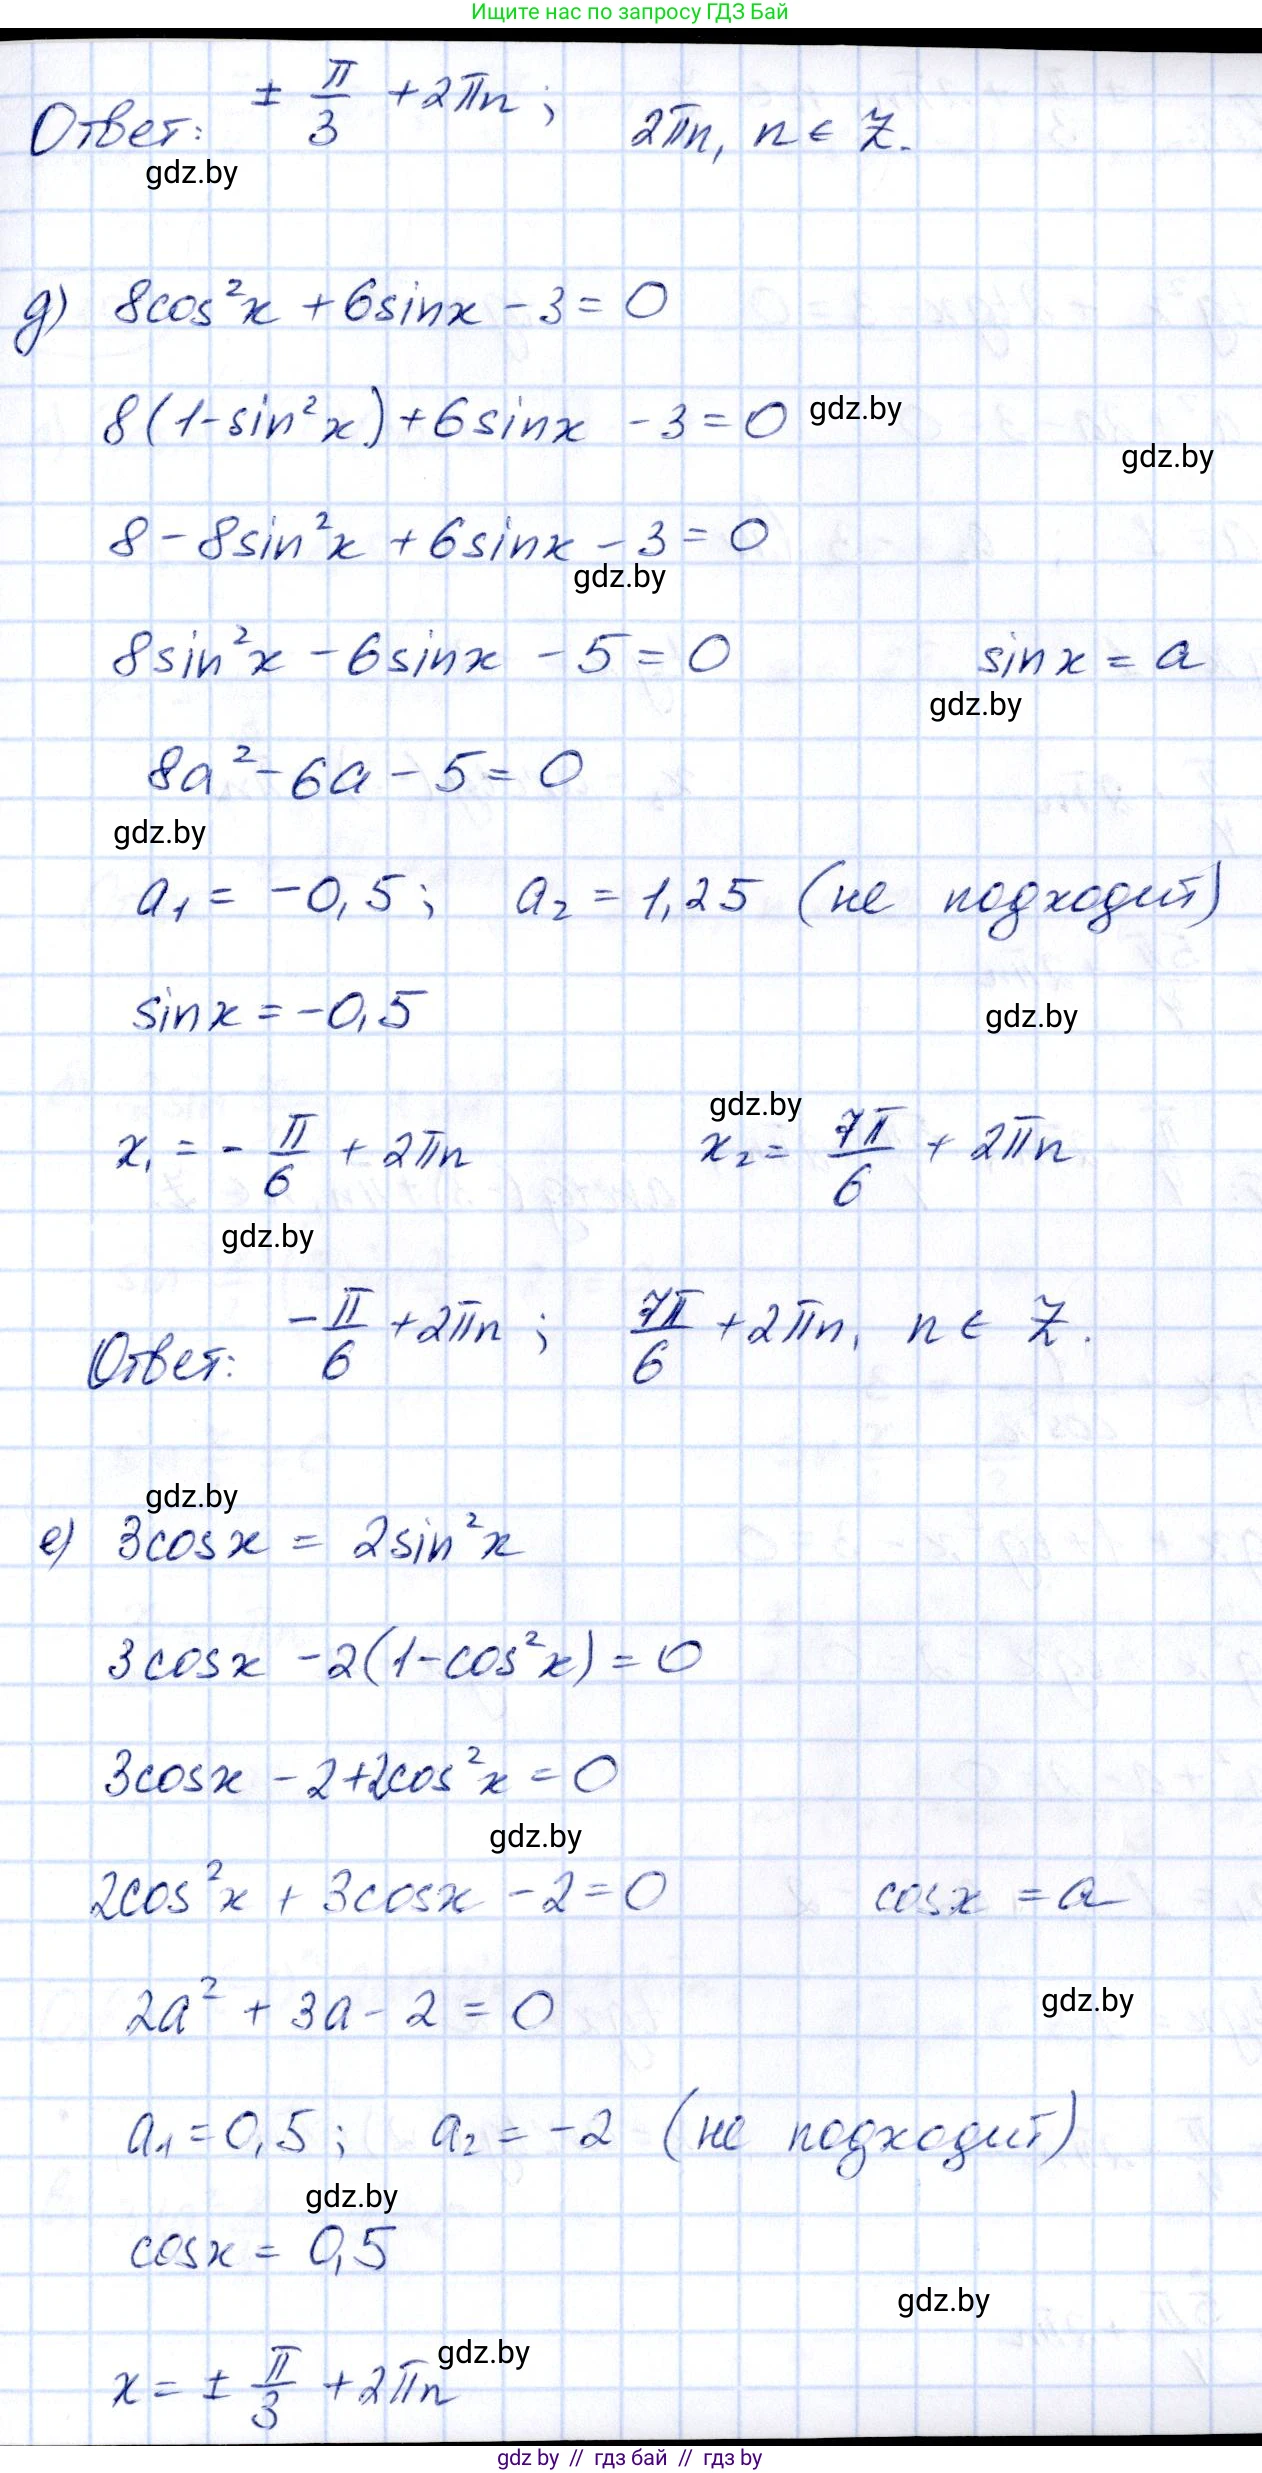 Ищите нас по запросу ГДЗ Бай
Ответ: ± π/3 + 2πn; 2πn, n ∈ Z.
gdz.by
д) 8cos²x + 6sinx - 3 = 0
8(1-sin²x) + 6sinx - 3 = 0 gdz.by
gdz.by
8 - 8sin²x + 6sinx - 3 = 0
gdz.by
8sin²x - 6sinx - 5 = 0 sinx = a
gdz.by
8a² - 6a - 5 = 0
gdz.by
a₁ = -0,5; a₂ = 1,25 (не подходит)
sinx = -0,5
gdz.by
gdz.by
x₁ = - π/6 + 2πn x₂ = 7π/6 + 2πn
gdz.by
Ответ: - π/6 + 2πn; 7π/6 + 2πn, n ∈ Z.
gdz.by
е) 3cosx = 2sin²x
3cosx - 2(1-cos²x) = 0
3cosx - 2 + 2cos²x = 0
gdz.by
2cos²x + 3cosx - 2 = 0 cosx = a
2a² + 3a - 2 = 0
gdz.by
a₁ = 0,5; a₂ = -2 (не подходит)
gdz.by
cosx = 0,5
gdz.by
gdz.by
x = ± π/3 + 2πn
gdz by // гдз бай // гдз by